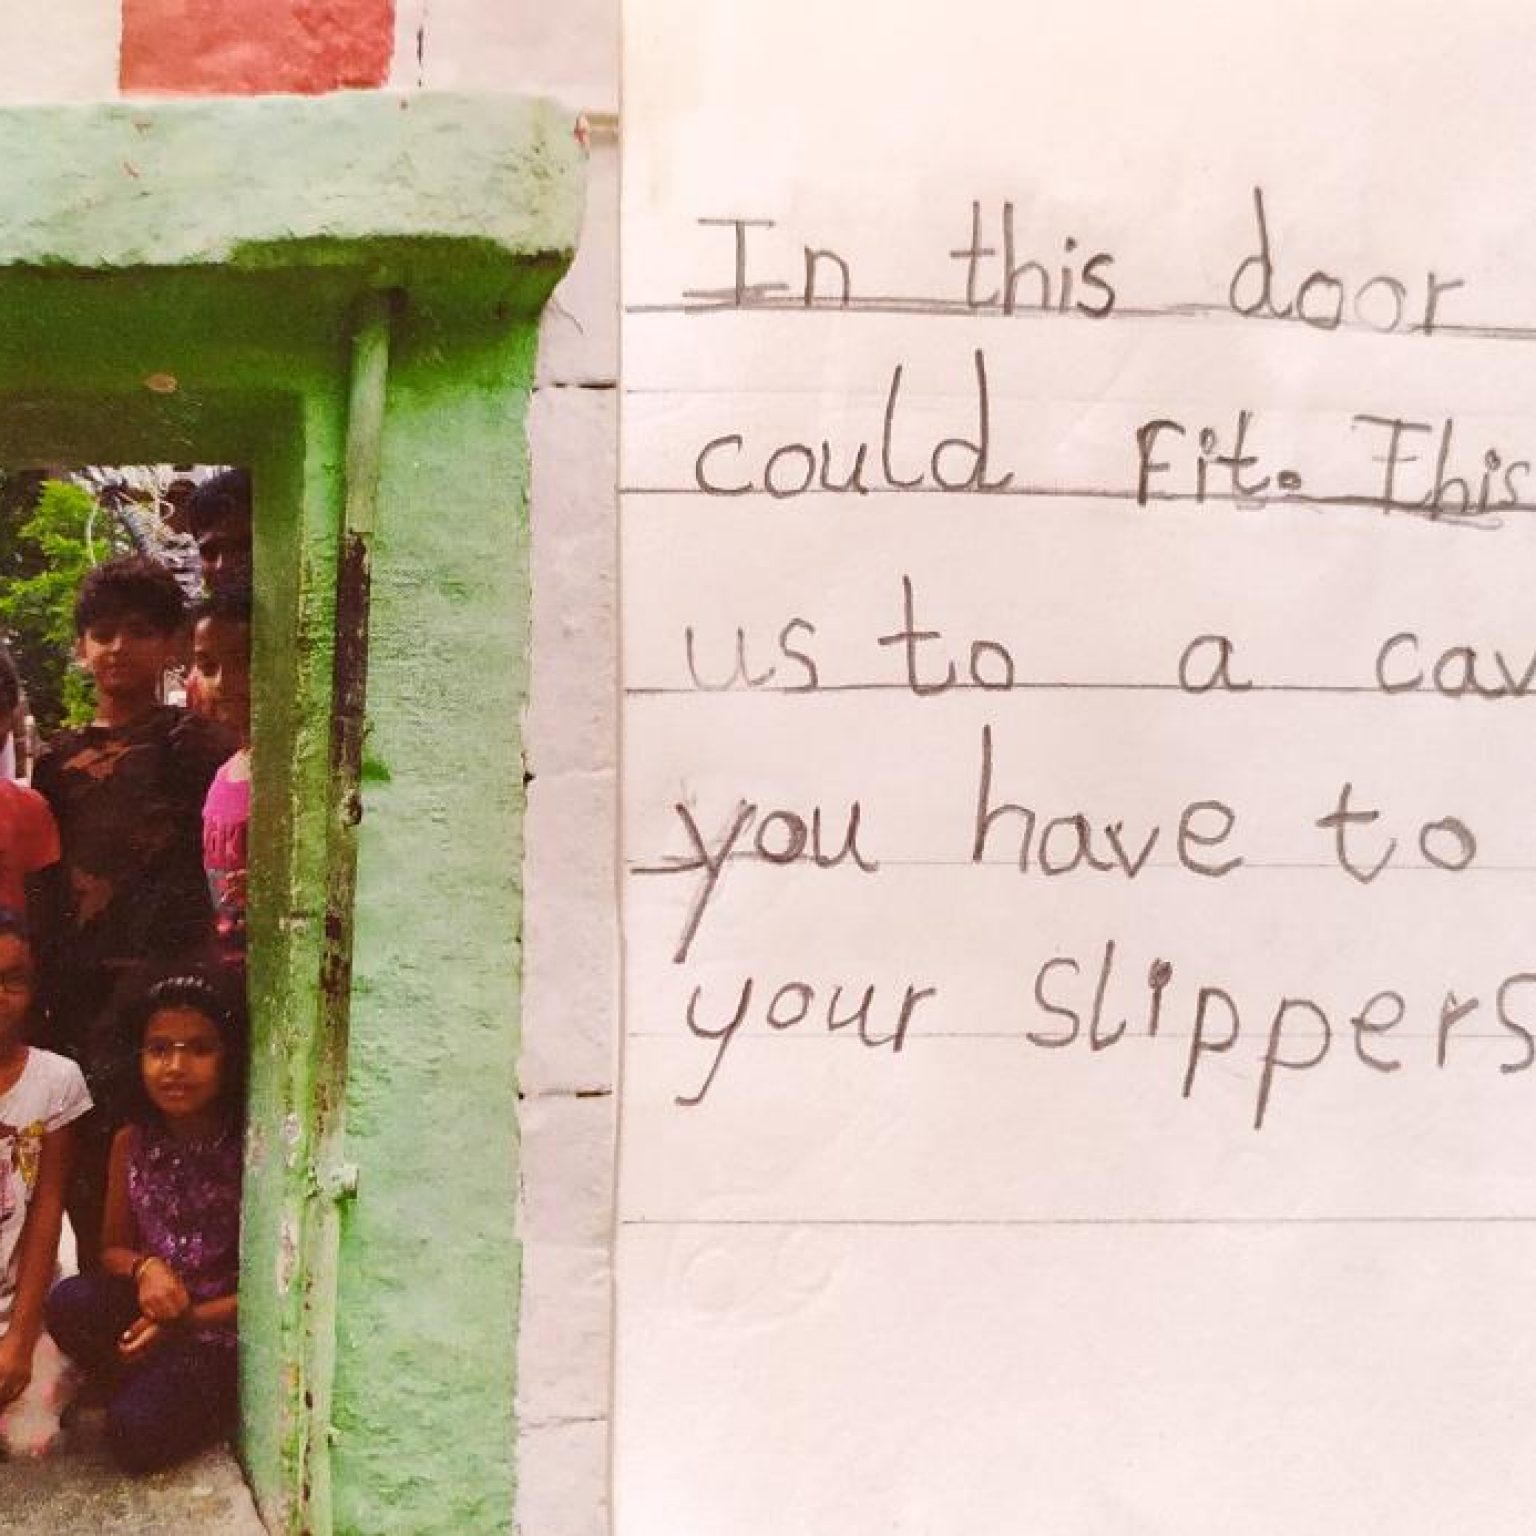 In this door
could Fit. This
us to a cav
you have to
your slippers